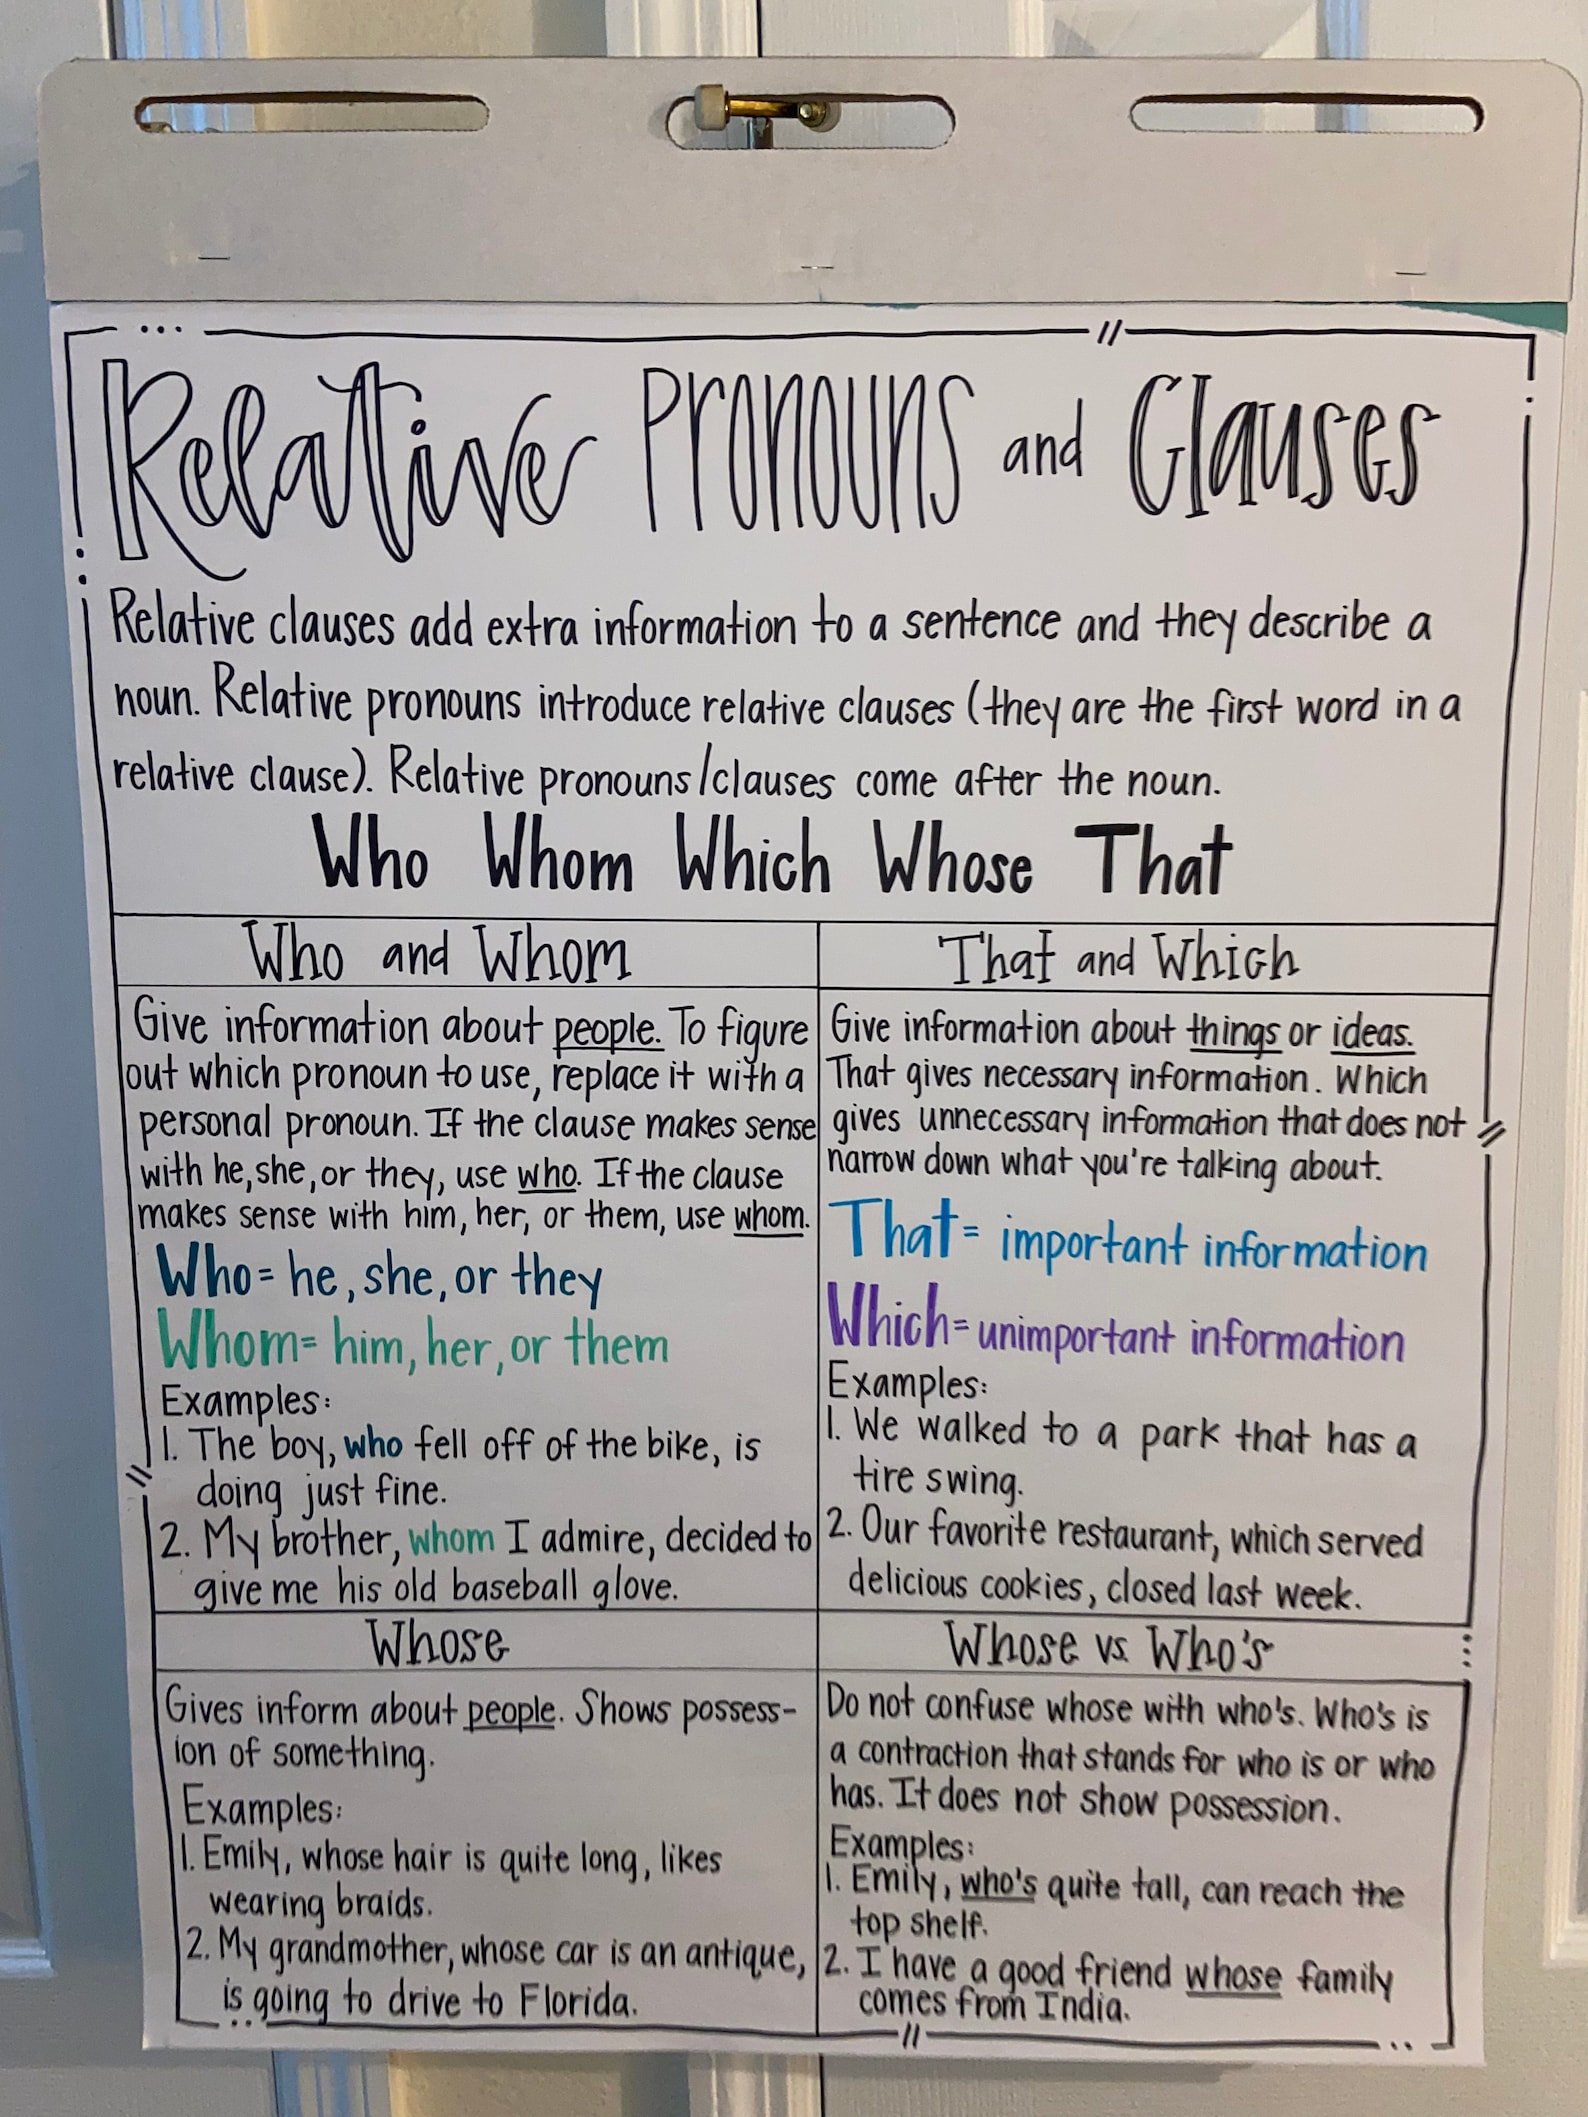 Relative Pronouns and Clauses
Relative clauses add extra information to a sentence and they describe a
noun. Relative pronouns introduce relative clauses (they are the first word in a
relative clause). Relative pronouns/clauses come after the noun.
Who Whom Which Whose That
Who and Whom
Give information about people. To figure
out which pronoun to use, replace it with a
personal pronoun. If the clause makes sense
with he, she, or they, use who. If the clause
makes sense with him, her, or them, use whom.
Who = he, she, or they
Whom = him, her, or them
Examples:
1. The boy, who fell off of the bike, is
doing just fine.
2. My brother, whom I admire, decided to
give me his old baseball glove.
That and Which
Give information about things or ideas.
That gives necessary information. Which
gives unnecessary information that does not
narrow down what you're talking about.
That = important information
Which = unimportant information
Examples:
1. We walked to a park that has a
tire swing.
2. Our favorite restaurant, which served
delicious cookies, closed last week.
Whose
Gives inform about people. Shows possess-
ion of something.
Examples:
1. Emily, whose hair is quite long, likes
wearing braids.
2. My grandmother, whose car is an antique,
is going to drive to Florida.
Whose vs. Who's
Do not confuse whose with who's. Who's is
a contraction that stands for who is or who
has. It does not show possession.
Examples:
1. Emily, who's quite tall, can reach the
top shelf.
2. I have a good friend whose family
comes from India.